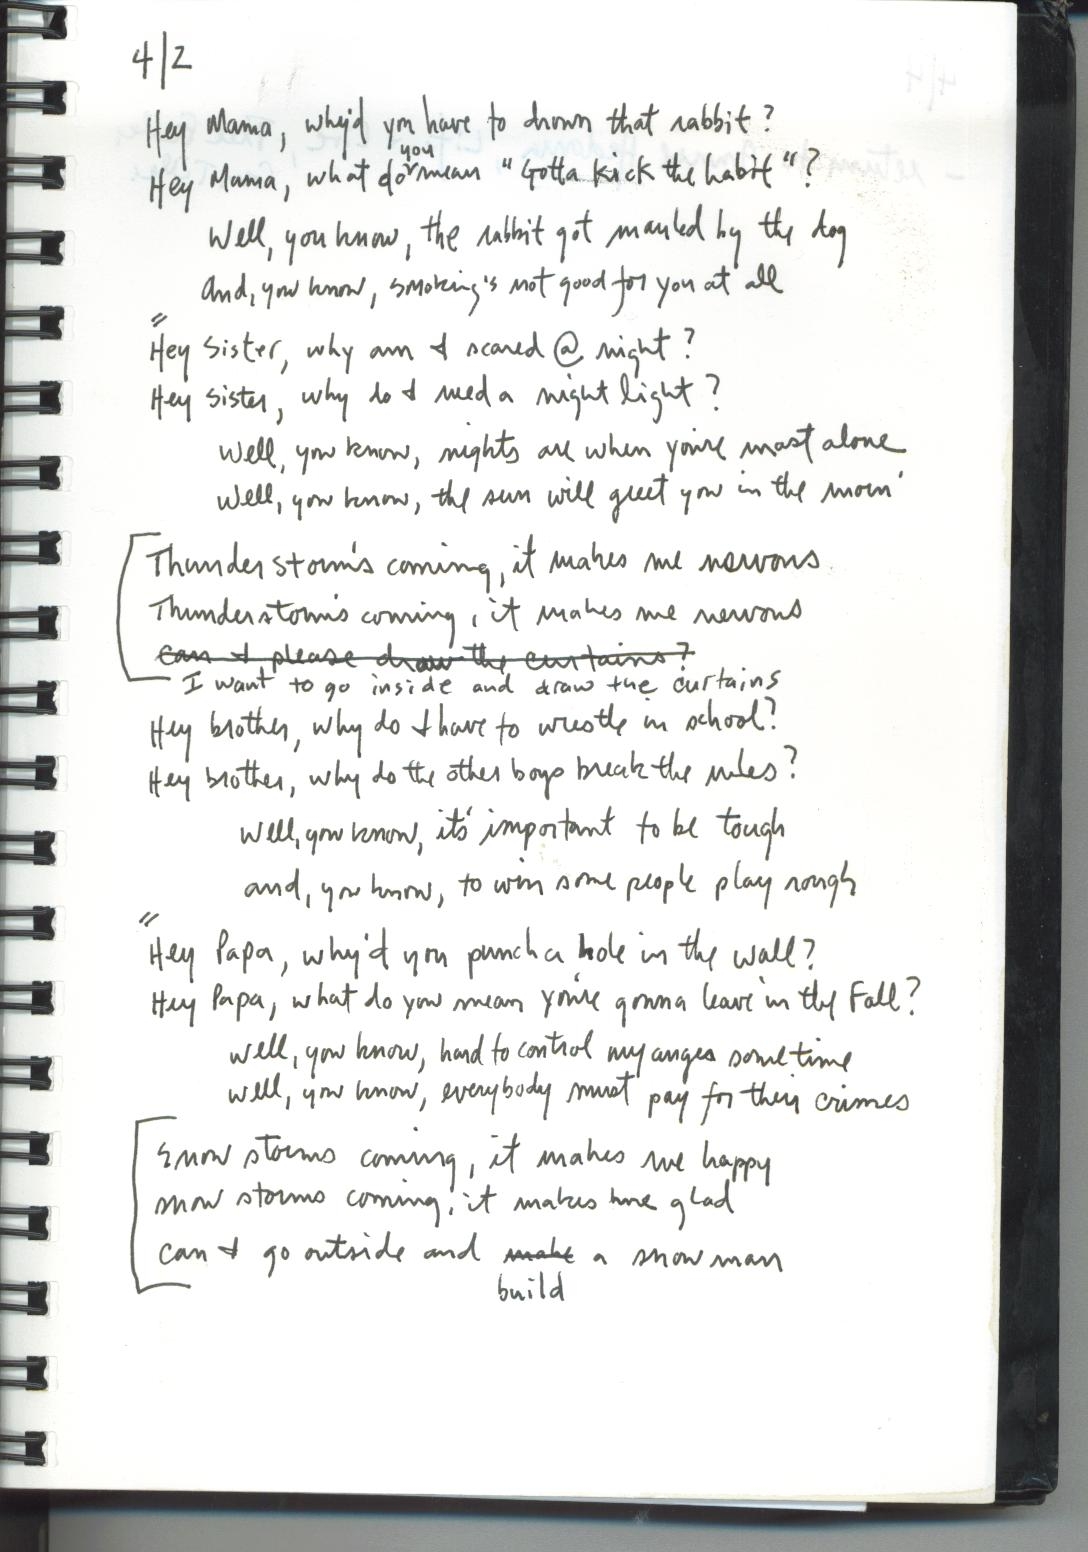 4/2
Hey Mama, why'd you have to drown that rabbit?
Hey Mama, what do you mean "Gotta kick the habit"?
Well, you know, the rabbit got mauled by the dog
And, you know, smoking's not good for you at all
"Hey Sister, why am I scared @ night?
Hey Sister, why do I need a night light?
Well, you know, nights are when you're most alone
Well, you know, the sun will greet you in the morn'
Thunderstorm's coming, it makes me nervous
Thunderstorm's coming, it makes me nervous
can I please draw the curtains?
I want to go inside and draw the curtains
Hey brother, why do I have to wrestle in school?
Hey brother, why do the other boys break the rules?
Well, you know, it's important to be tough
and, you know, to win some people play rough
"Hey Papa, why'd you punch a hole in the wall?
Hey Papa, what do you mean you're gonna leave in the Fall?
well, you know, hard to control my anger sometime
well, you know, everybody must pay for their crimes
Snow storms coming, it makes me happy
snow storms coming, it makes me glad
can I go outside and make a snowman
build